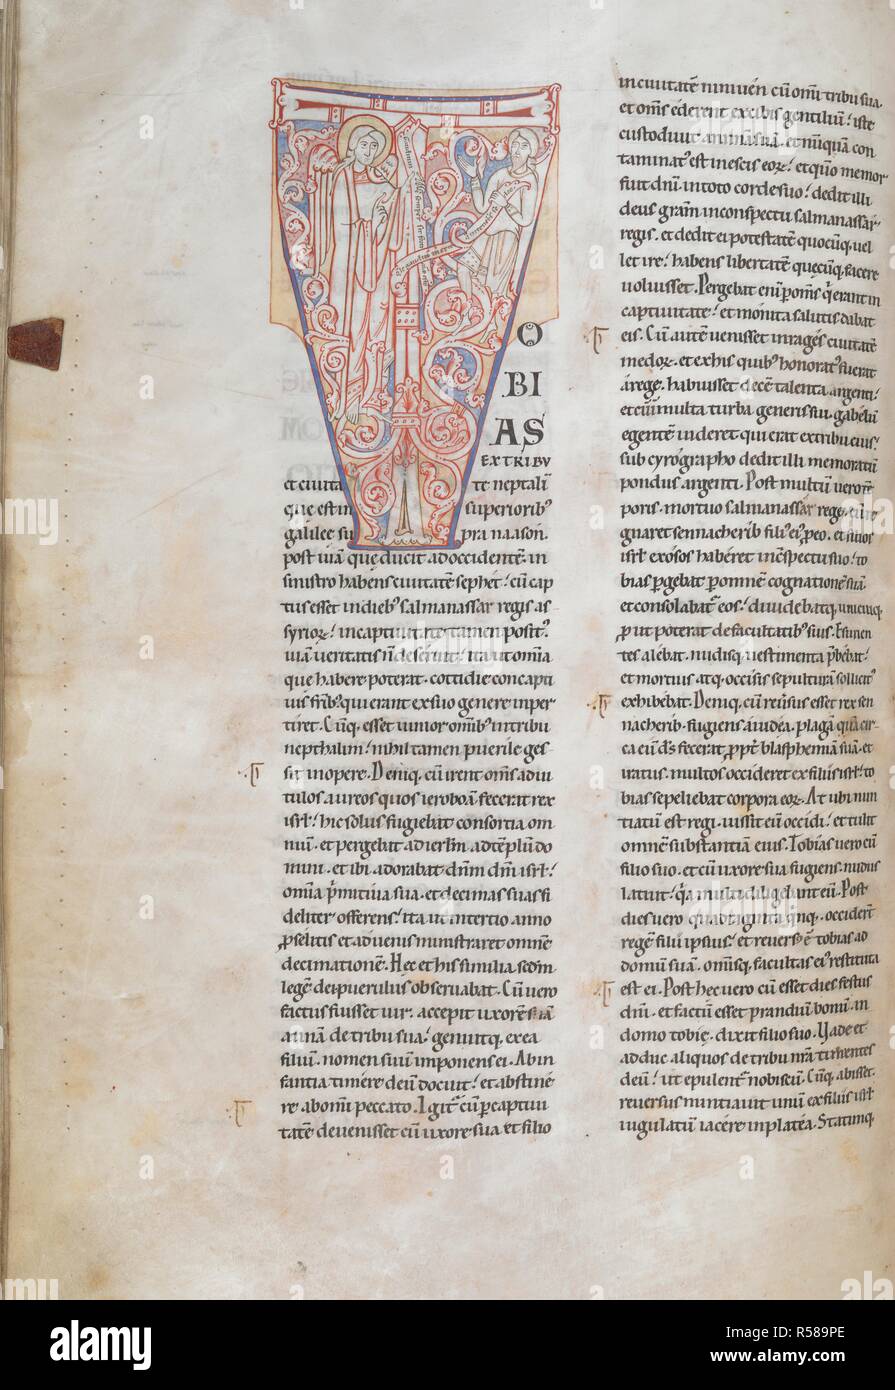 O
BI
AS
EX TRIBU
et ciuita te neptalī
que est in superioribꝰ
galileę su pra naason.
post uiam que ducit ad occidentē. in
sinistro habens ciuitatē sephet. cū cap
tus esset in diebꝰ salmanassar regis as
syrioꝝ. in captiuitate tamen positꝰ.
uiā ueritatis n̄ deseruit. ita ut omīa
que habere poterat. cottidie concapti
uis fr̄ibꝰ qui erant ex suo genere inper
tiret. Cūq; esset iunior omībꝰ in tribu
nepthalim. nihil tamen puerile ges
sit in opere. Deniq; cū irent om̄s ad ui
tulos aureos quos ieroboā fecerat rex
isrł. hic solus fugiebat consortia om
niū. et pergebat ad ierłm ad tēplū do
mini. et ibi adorabat dn̄m dm̄ isrł.
omīa p̄mitiua sua. et decimas suas fi
deliter offerens. ita ut in tertio anno
ꝓselitis et aduenis ministraret omnē
decimationē. Hec et his similia sedm̄
legē dei puerulus obseruabat. Cū uero
factus fuisset uir. accepit uxorē
annā de tribu sua. genuitq; ex ea
filiū. nomen suū imponens ei. Ab in
fantia timere deū docuit. et abstine
re ab omi peccato. Igit᷑ cū ꝑ captiui
tatē deuenisset cū uxore sua et filio
in ciuitatē niniuen cū omi tribu sua.
et om̄s ederent ex cibis gentiliū. iste
custodiuit animā suā. et nūquā con
taminatꝰ est in escis eoꝝ. et quo memor
fuit dn̄i in toto corde suo. dedit illi
deus grām in conspectu salmanassar
regis. et dedit ei potestatē quocūq; uel
let ire. habens libertatē quecūq; facere
uoluisset. Pergebat en̄i ꝑ om̄s q̄ erant in
captiuitate. et monita salutis dabat
eis. Cū autē uenisset in rages ciuitatē
medoꝝ. et ex his quibꝰ honoratꝰ fuerat
a rege. habuisset decē talenta argenti.
et cū multa turba generis sui gabelū
egentē uideret qui erat ex tribu eius.
sub cyrographo dedit illi memoratū
pondus argenti. Post multū uero tē
poris. mortuo salmanassar rege.
gnaret sennacherib filiꝰ eiꝰ ꝑ eo. et filios
isrł exosos haberet in cōspectu suo. to
bias ꝑgebat ꝑ omnē cognationē suā.
et consolabat᷑ eos. diuidebatq; unicuiq;
ꝓut poterat de facultatibꝰ suis. Esurien
tes alebat. nudisq; uestimenta p̄bebat.
et mortuis atq; occisis sepulturā sollicitꝰ
exhibebat. Deniq; cū reuersus esset rex sen
nacherib. fugiens a iudea. plagā quā cir
ca eū ds̄ fecerat ꝓpt᷑ blasphemiā suā. et
iratus. multos occideret ex filiis isrł. to
bias sepeliebat corpora eoꝝ. At ubi nun
tiatū est regi. iussit eū occidi. et tulit
omnē substantiā eius. Tobias uero cū
filio suo. et cū uxore sua fugiens. nudus
latuit. q̄a multi diligebant eū. Post
dies uero quadraginta qinq;. occidert̄
regē filii ipsius. et reuersꝰ ē tobias ad
domū suā. omīsq; facultas eiꝰ restituta
est ei. Post hec uero cū esset dies festus
dn̄i. et factū esset prandiū bonū. in
domo tobie. dixit filio suo. Uade et
adduc aliquos de tribu nr̄a timentes
deū. ut epulent᷑ nobiscū. Cūq; abisset.
reuersus nuntiauit unū ex filiis isrł
iugulatū iacere in platea. Statimq;
alamy
a
alamy stock photo
Image ID: R589PE
www.alamy.com